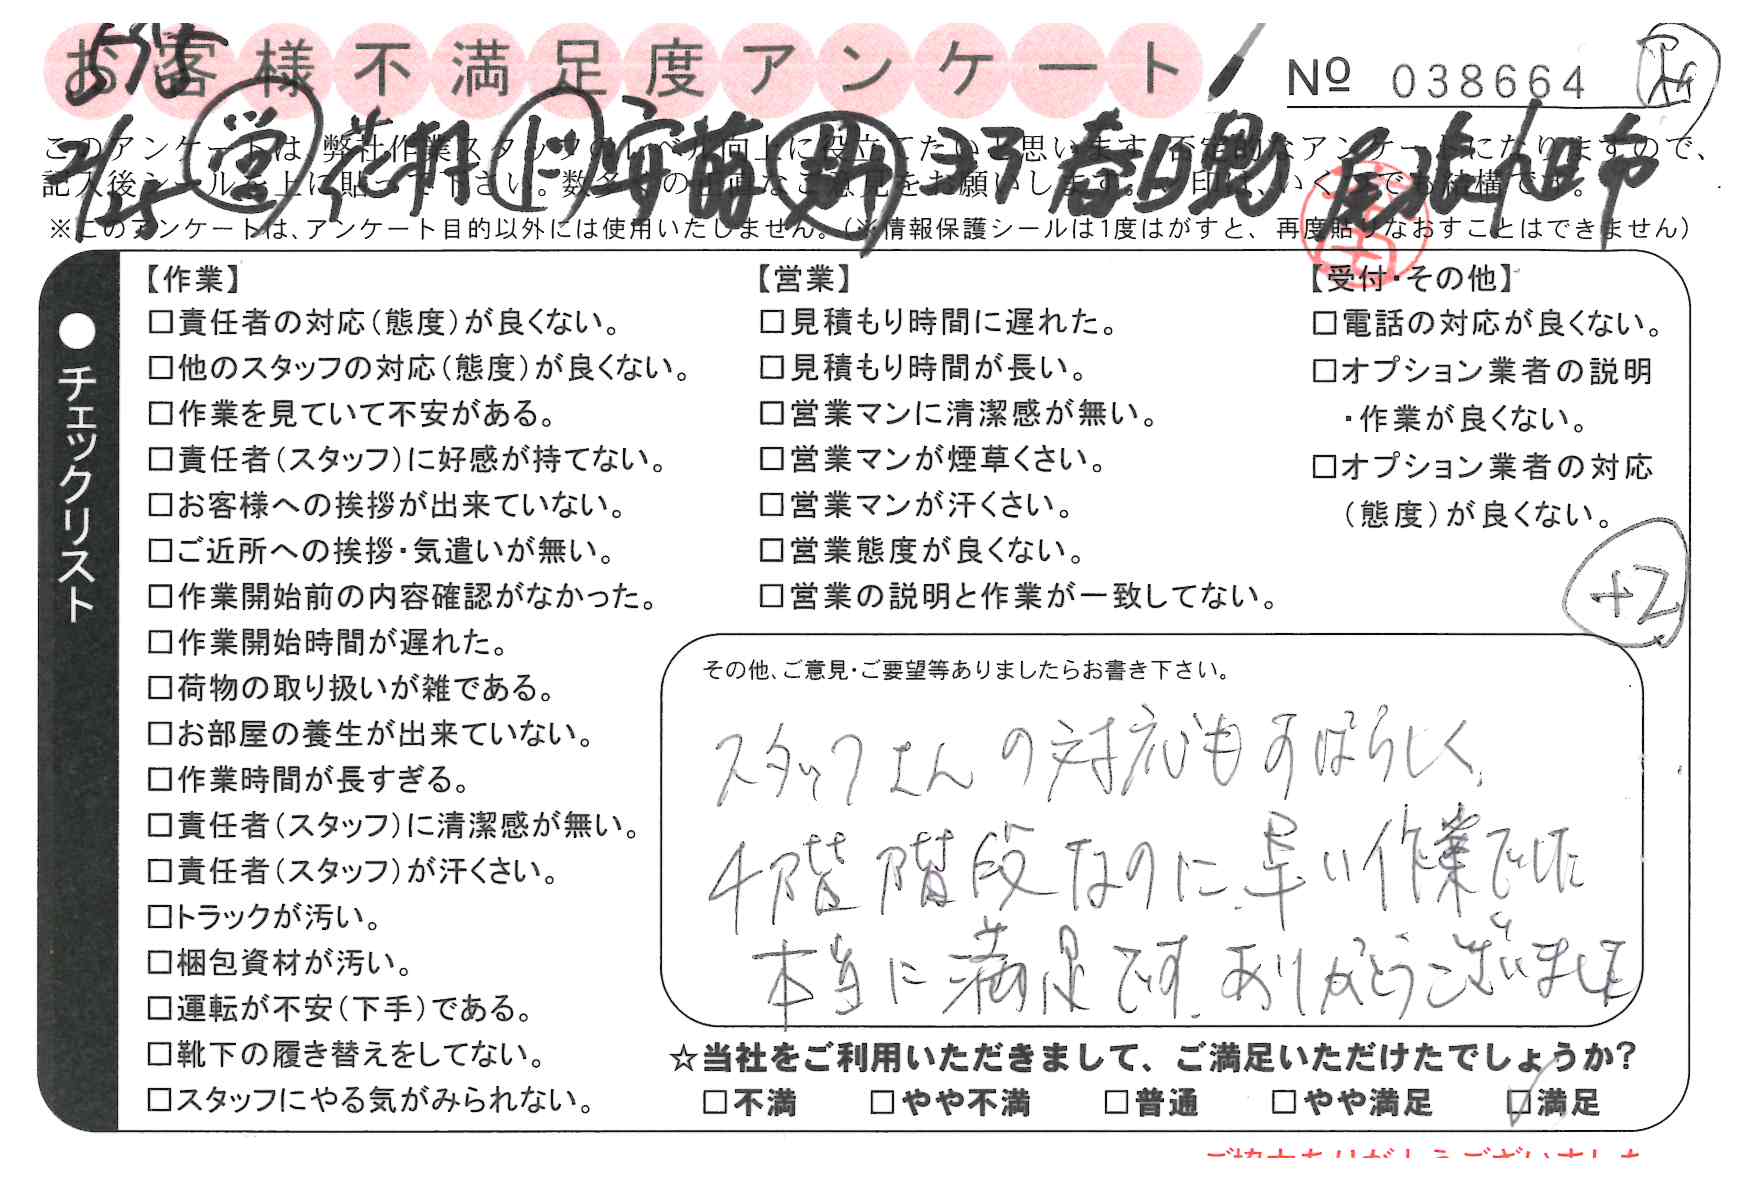 お客様不満足度アンケート
Nº 038664
このアンケートは、弊社作業スタッフのレベル向上に役立てたいと思います。否定的なアンケートになりますので、
記入後シールを上に貼って下さい。数多くの正直なご意見をお願いします。✓印は、いくつでも結構です。
※このアンケートは、アンケート目的以外には使用いたしません。(※情報保護シールは1度はがすと、再度貼りなおすことはできません)
●チェックリスト
【作業】
□責任者の対応(態度)が良くない。
□他のスタッフの対応(態度)が良くない。
□作業を見ていて不安がある。
□責任者(スタッフ)に好感が持てない。
□お客様への挨拶が出来ていない。
□ご近所への挨拶・気遣いが無い。
□作業開始前の内容確認がなかった。
□作業開始時間が遅れた。
□荷物の取り扱いが雑である。
□お部屋の養生が出来ていない。
□作業時間が長すぎる。
□責任者(スタッフ)に清潔感が無い。
□責任者(スタッフ)が汗くさい。
□トラックが汚い。
□梱包資材が汚い。
□運転が不安(下手)である。
□靴下の履き替えをしてない。
□スタッフにやる気がみられない。
【営業】
□見積もり時間に遅れた。
□見積もり時間が長い。
□営業マンに清潔感が無い。
□営業マンが煙草くさい。
□営業マンが汗くさい。
□営業態度が良くない。
□営業の説明と作業が一致してない。
【受付・その他】
□電話の対応が良くない。
□オプション業者の説明
・作業が良くない。
□オプション業者の対応
(態度)が良くない。
+2
その他、ご意見・ご要望等ありましたらお書き下さい。
スタッフさんの対応もすばらしく、
4階階段なのに早い作業でした
本当に満足です。ありがとうございました
☆当社をご利用いただきまして、ご満足いただけたでしょうか?
□不満 □やや不満 □普通 □やや満足 ☑満足
ご協力ありがとうございました